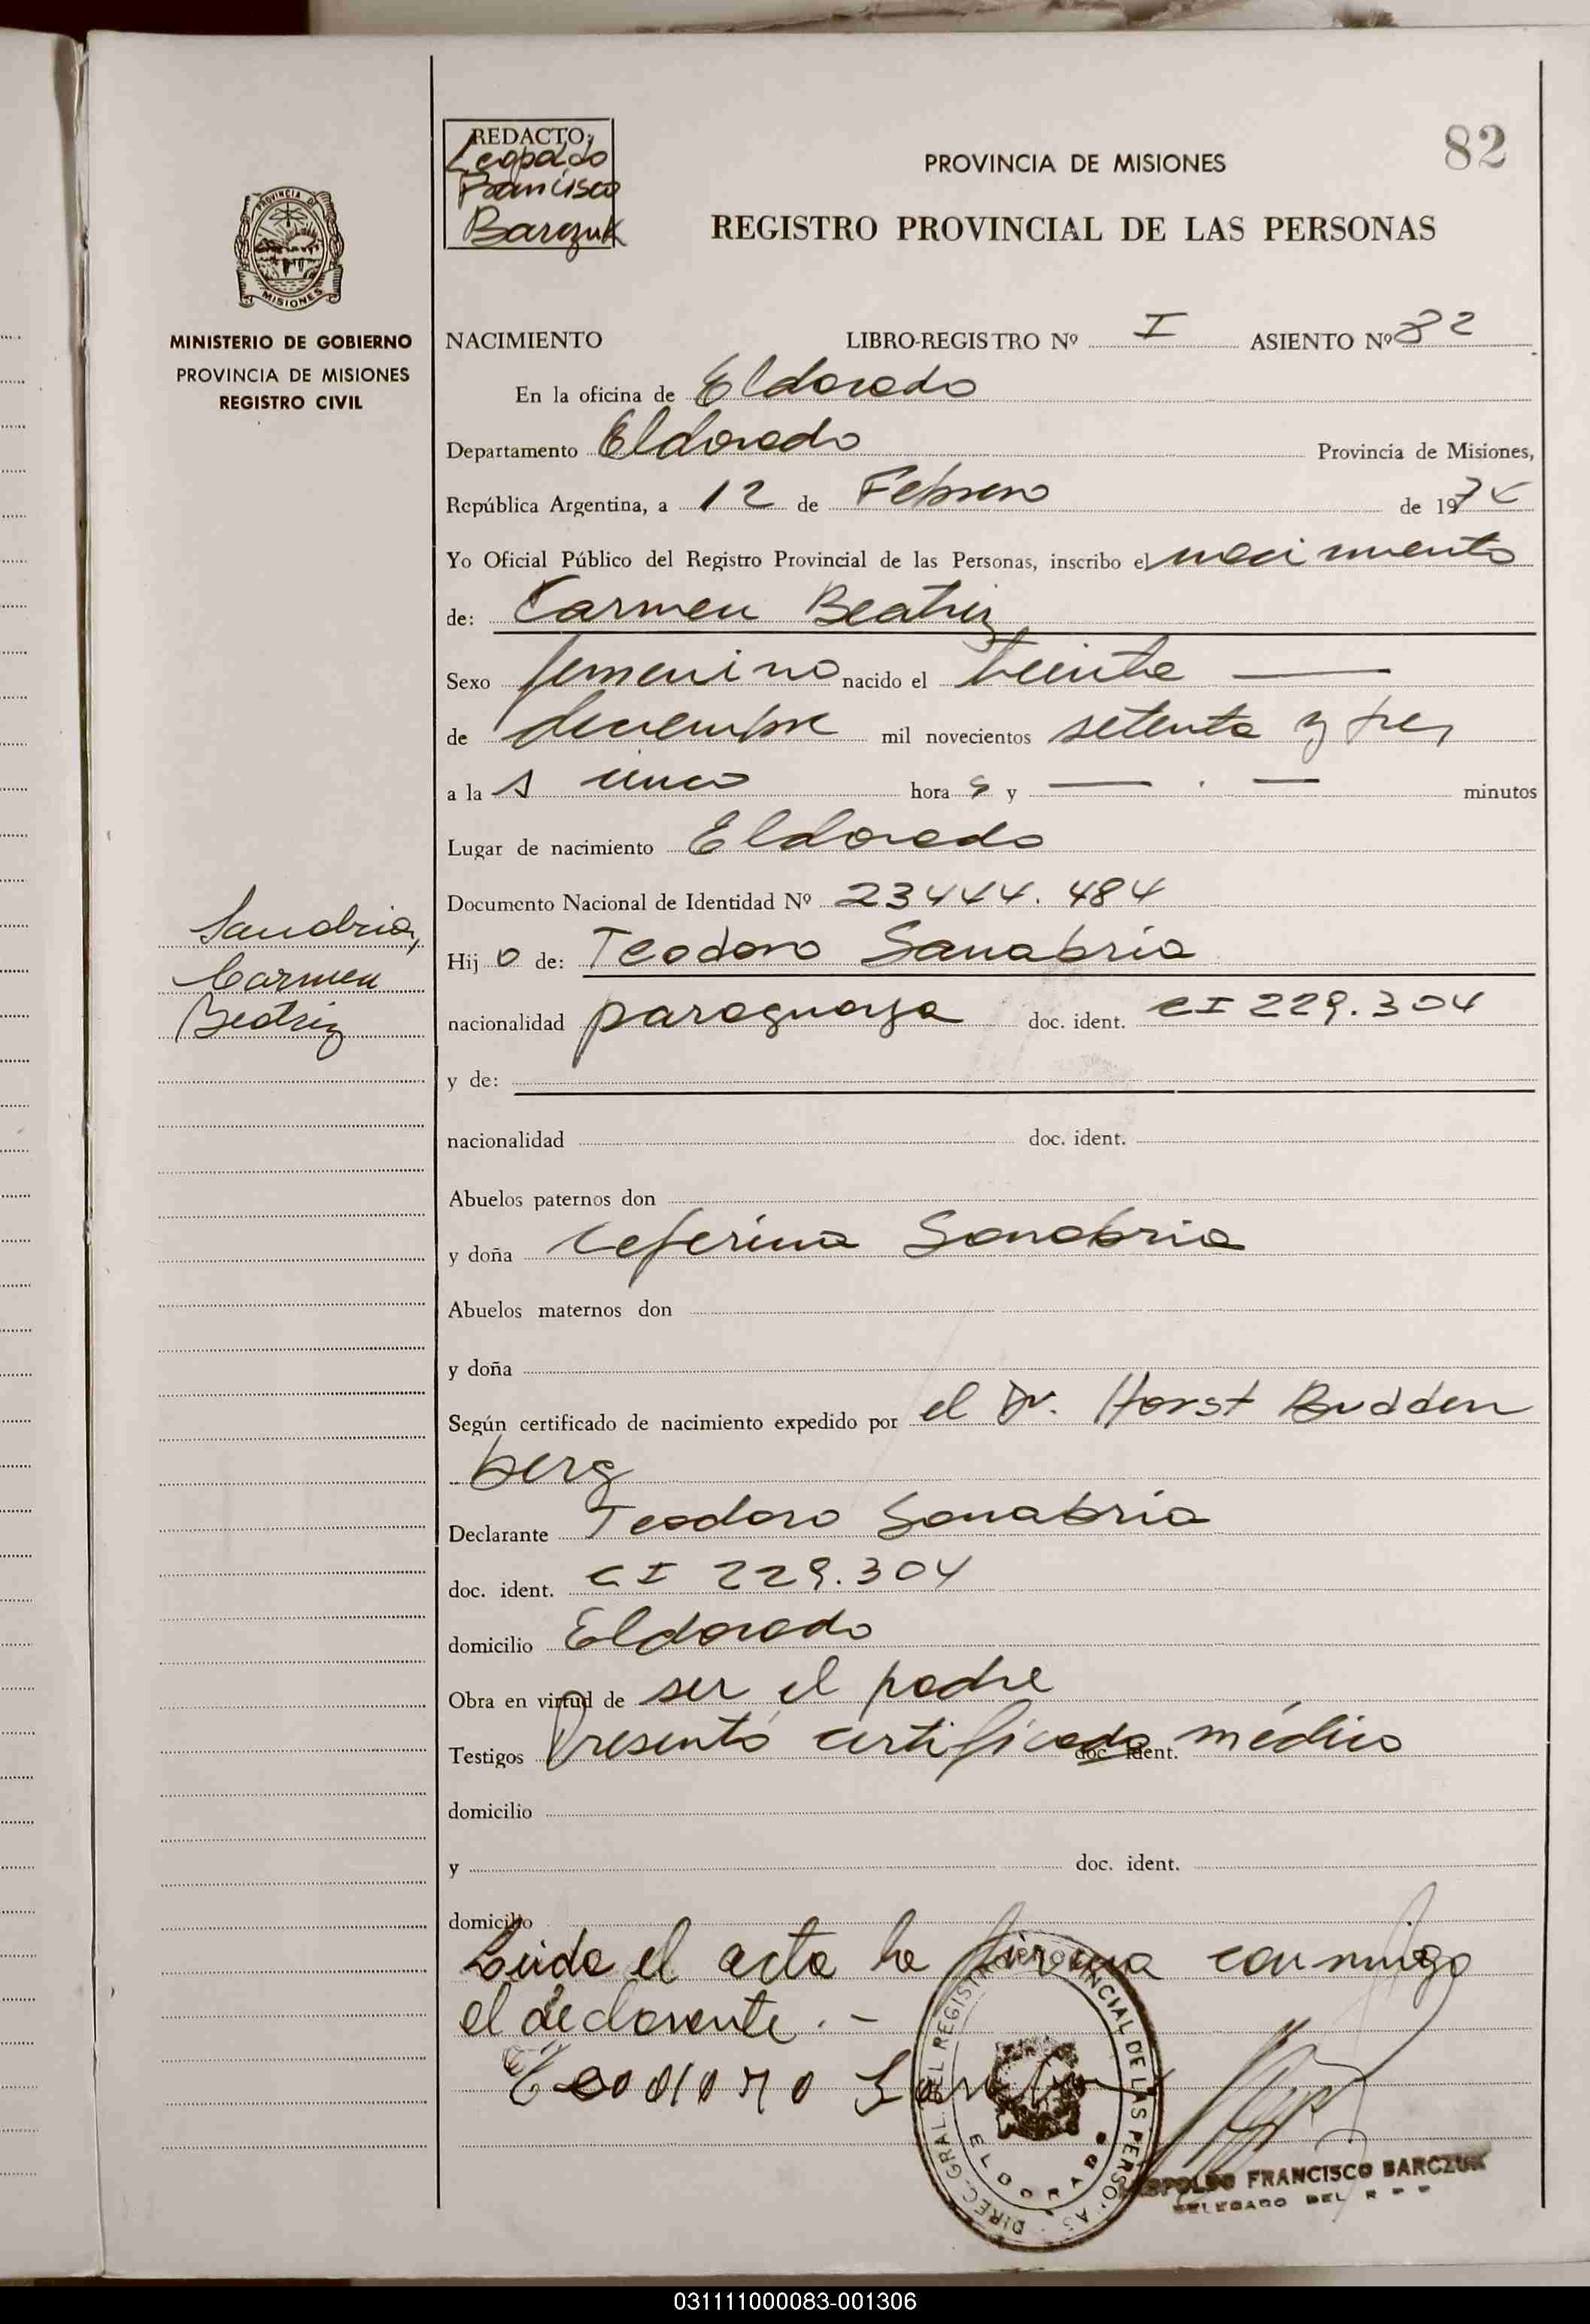 82
REDACTO:
Leopoldo
Francisco
Barczuk
PROVINCIA DE MISIONES
REGISTRO PROVINCIAL DE LAS PERSONAS
PROVINCIA DE
MISIONES
MINISTERIO DE GOBIERNO
PROVINCIA DE MISIONES
REGISTRO CIVIL
NACIMIENTO LIBRO-REGISTRO Nº I ASIENTO Nº 82
En la oficina de Eldorado
Departamento Eldorado Provincia de Misiones,
República Argentina, a 12 de Febrero de 1974
Yo Oficial Público del Registro Provincial de las Personas, inscribo el nacimiento
de: Carmen Beatriz
Sexo femenino nacido el veinte
de diciembre mil novecientos setenta y tres
a la s cinco hora s y minutos
Lugar de nacimiento Eldorado
Documento Nacional de Identidad Nº 23444.484
Sanabria,
Carmen
Beatriz
Hij o de: Teodoro Sanabria
nacionalidad paraguaya doc. ident. CI 229.304
y de:
nacionalidad doc. ident.
Abuelos paternos don
y doña Ceferina Sanabria
Abuelos maternos don
y doña
Según certificado de nacimiento expedido por el Dr. Horst Budden
berg
Declarante Teodoro Sanabria
doc. ident. CI 229.304
domicilio Eldorado
Obra en virtud de ser el padre
Testigos Presentó certificado doc. ident. médico
domicilio
y doc. ident.
domicilio
Leida el acta la firma conmigo
el declarante.-
Teodoro
DIREC. GRAL. DEL REGISTRO PROVINCIAL DE LAS PERSONAS
ELDORADO
LEOPOLDO FRANCISCO BARCZUK
DELEGADO DEL R P P
031111000083-001306